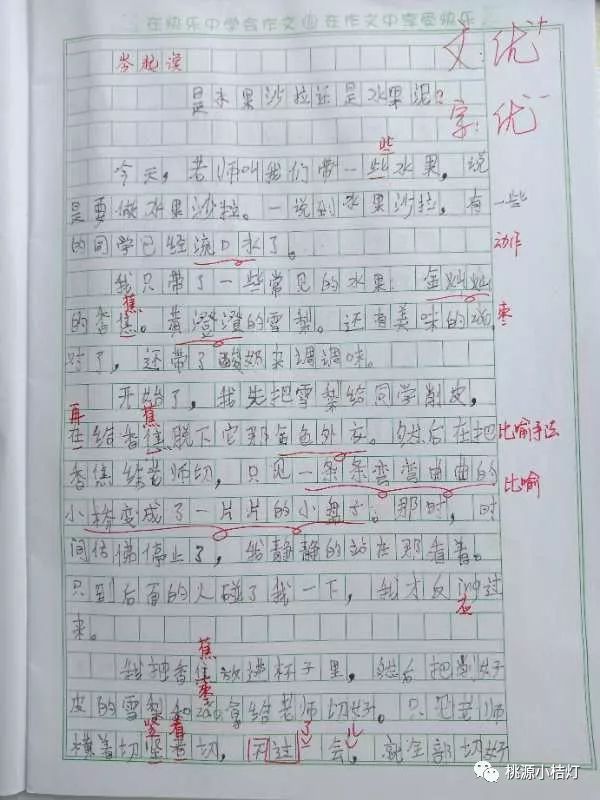 在快乐中学会作文 在作文中享受快乐
岑 读
文:优++
是水果沙拉还是水果泥?
字:优一
些
今天,老师叫我们带一些水果,说
是要做水果沙拉。一说到水果沙拉,有一些
的同学已经流口水了。 动作
我只带了一些常见的水果:金灿灿
蕉
的香蕉。黄澄澄的雪梨。还有美味的 枣
对了,还带了酸奶来调调味。
开始了,我先把雪梨给同学削皮,
再 蕉
在给香 脱下它那金色外衣。然后在把 比喻手法
香焦给老师切,只见一条条弯弯曲曲的 比喻
小桥变成了一片片的小盘子。那时,时
间仿佛停止了,我静静的站在那看着。
只到后面的人碰了我一下,我才反ing过
应
来。
蕉
我把香 放进杯子里,然后把 好
枣
皮的雪梨和 拿给老师切好。只见老师
竖 着 了 儿
横着切坚着切,不过 会,就全部切好
桃源小桔灯